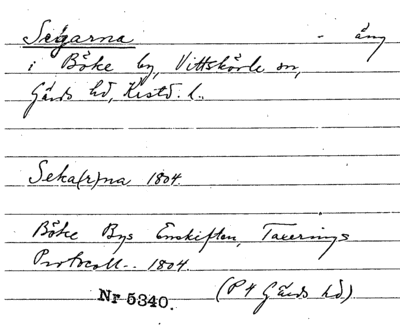 Segarna - äng
i Böke by, Vittskövle sn,
Gärds hd, Kristd. l.
Seka(r)na 1804
Böke Bys Enskiften, Taxerings
Protocoll.. 1804.
Nr 5340. (P 4 Gärds hd)